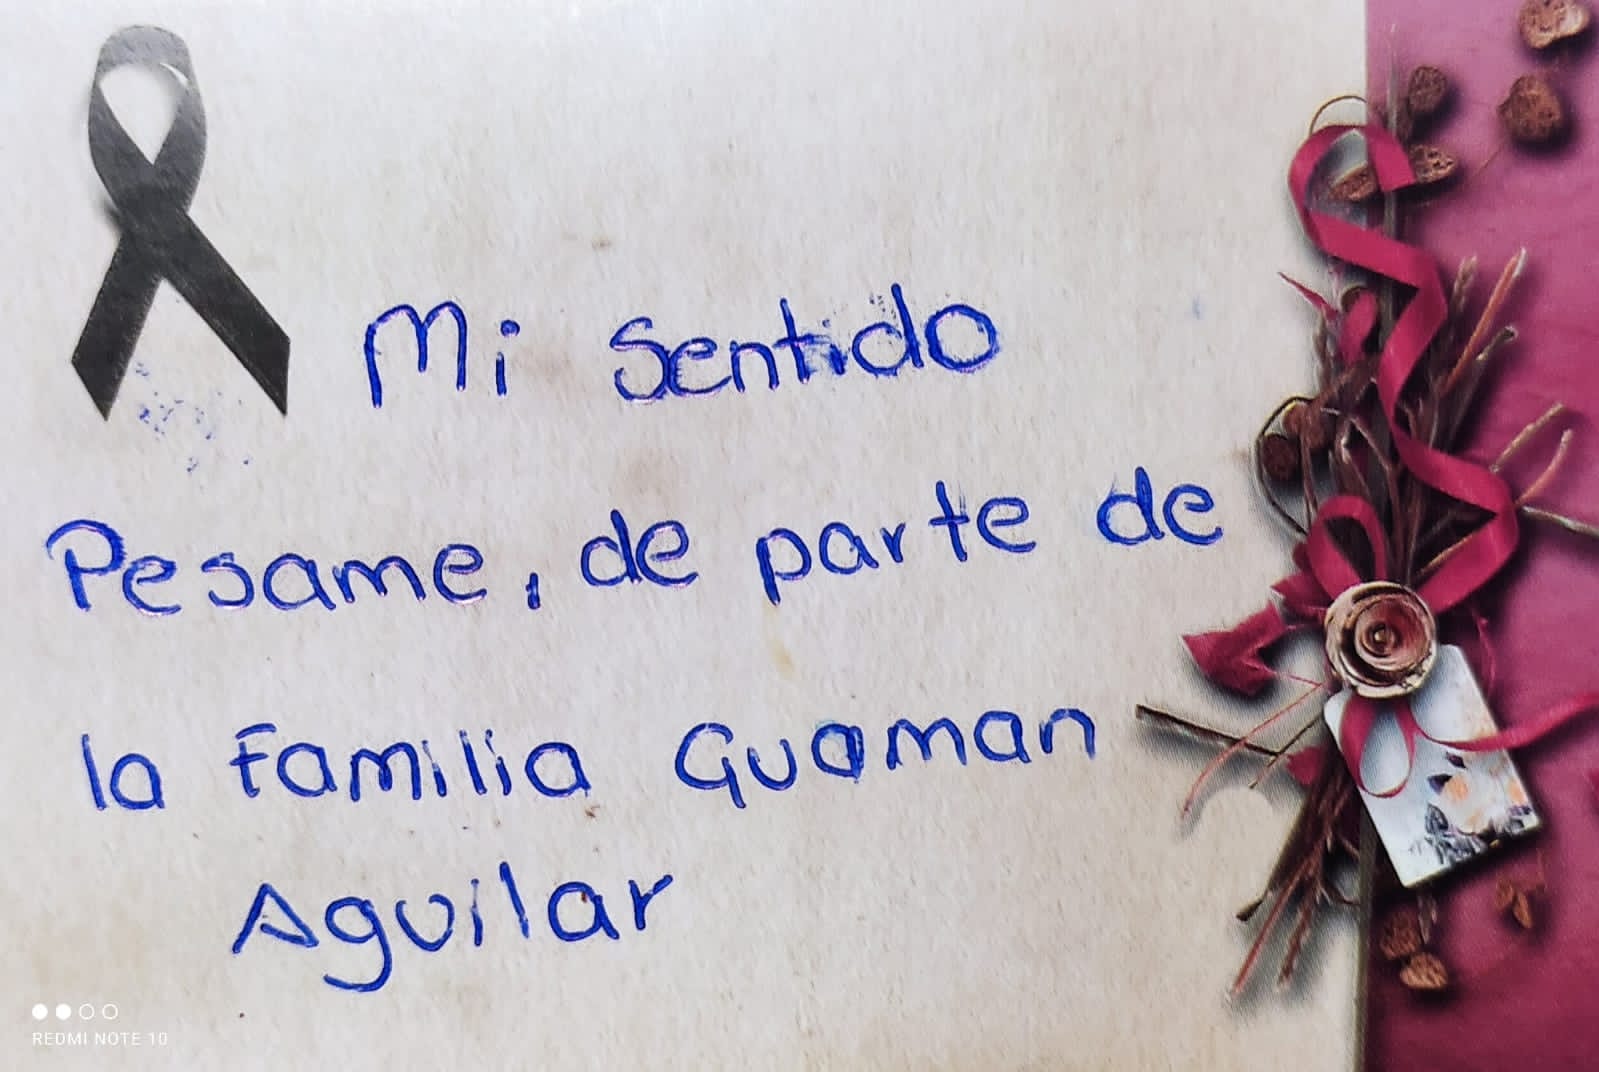 Mi sentido
Pesame, de parte de
la Familia Guaman
Aguilar
REDMI NOTE 10